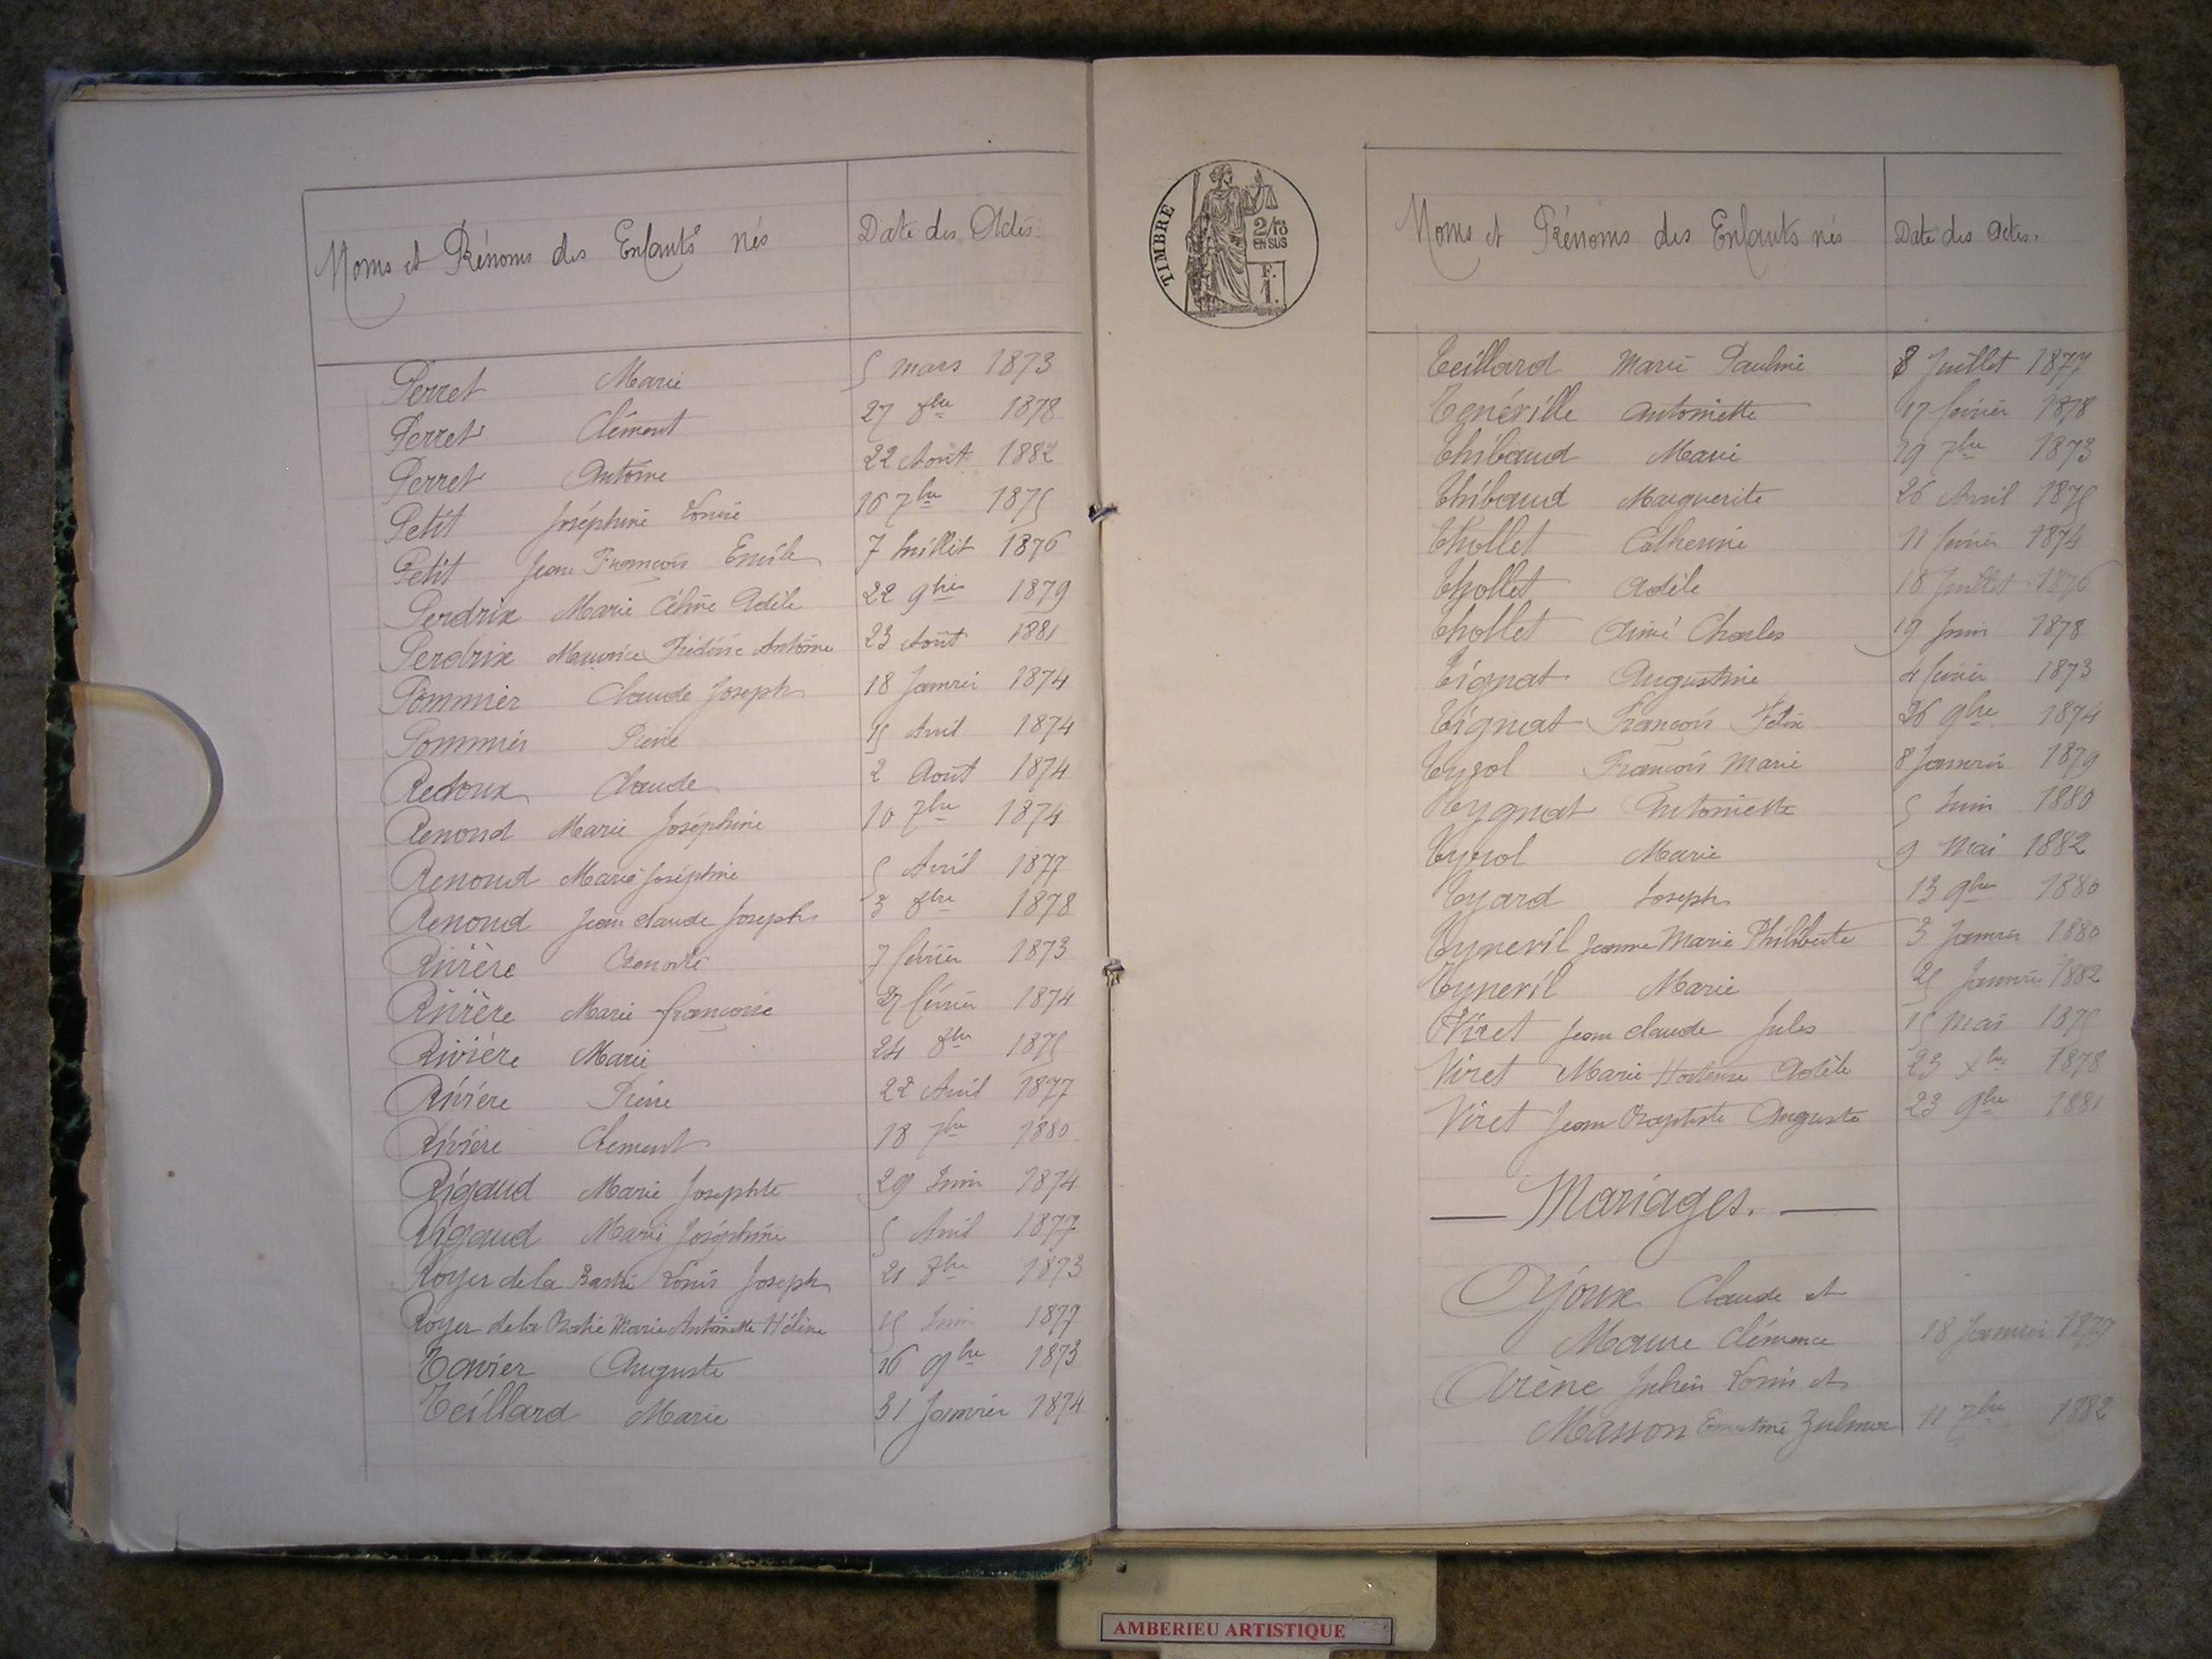 Noms et Prénoms des Enfants nés Date des Actes
Perret Marie 5 mars 1873
Perret Clément 27 8bre 1878
Perret Antoine 22 Août 1882
Petit Joséphine Louise 16 7bre 1875
Petit Jean François Emile 7 Juillet 1876
Perdrix Marie Céline Adèle 22 9bre 1879
Perdrix Maurice Frédéric Antoine 23 Août 1881
Pommier Claude Joseph 18 Janvier 1874
Pommier Pierre 15 Avril 1874
Redoux Claude 2 Août 1874
Renoud Marie Joséphine 10 7bre 1874
Renoud Marie Joséphine 5 Avril 1877
Renoud Jean Claude Joseph 3 8bre 1878
Rivière Benoite 7 février 1873
Rivière Marie françoise 27 février 1874
Rivière Marie 24 8bre 1875
Rivière Pierre 22 Avril 1877
Rivière Clement 18 7bre 1880
Rigaud Marie Josephte 29 Juin 1874
Rigaud Marie Joséphine 5 Avril 1877
Royer de la Bastie Louis Joseph 21 8bre 1873
Royer de la Bastie Marie Antoinette Hélène 15 Juin 1877
Tavier Auguste 16 9bre 1873
Teillard Marie 31 Janvier 1874
TIMBRE
2/10
EN SUS
F.
1.
Noms et Prénoms des Enfants nés Date des actes.
Teillard Marie Pauline 8 Juillet 1877
Tenéville Antoinette 17 février 1878
Thibaud Marie 19 7bre 1873
Thibaud Marguerite 26 Avril 1875
Thollet Catherine 11 février 1874
Thollet Adèle 18 Juillet 1876
Thollet Aimé Charles 19 Juin 1878
Tignat Augustine 4 février 1873
Tignat François Félix 26 9bre 1874
Tyzol François Marie 8 Janvier 1879
Tygnat Antoinette 5 Juin 1880
Tyzol Marie 9 Mai 1882
Tyard Joseph 13 9bre 1880
Tynevil Jeanne Marie Philiberte 3 Janvier 1880
Tynevil Marie 25 Janvier 1882
Viret Jean Claude Jules 15 Mai 1875
Viret Marie Hortense Adèle 23 Xbre 1878
Viret Jean Baptiste Auguste 23 9bre 1881
Mariages.
Ajoux Claude et
Maure Clémence 18 Janvier 1877
Arène Julien Louis et
Masson Ernestine Zulma 11 7bre 1882
AMBERIEU ARTISTIQUE